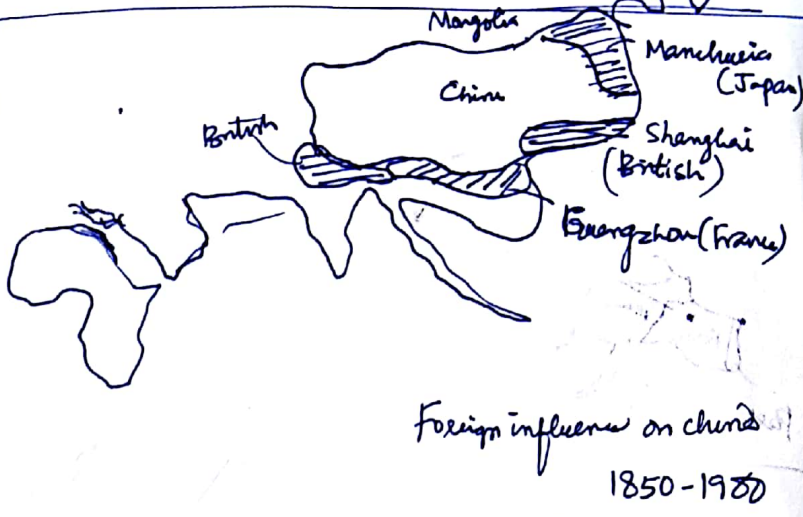 Mongolia
Manchuria
(Japan)
China
British
Shanghai
(British)
Guangzhou (France)
Foreign influence on china
1850-1900